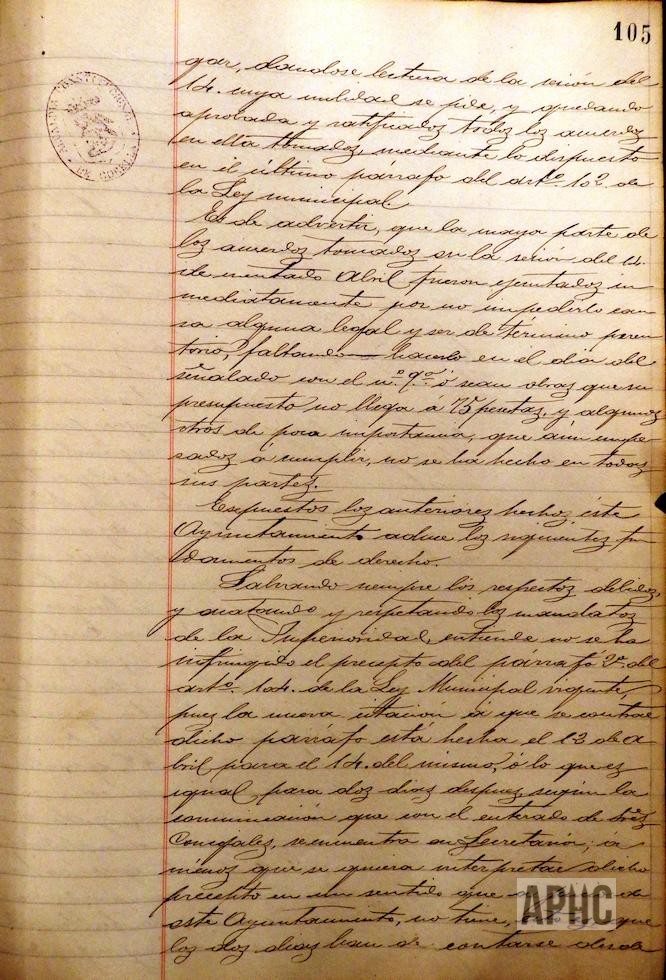 105
ALCALDIA CONSTITUCIONAL
gar, dandose lectura de la sesión del
14. cuya nulidad se pide, y quedando
aprobada y ratificados todos los acuerdos
en ella tomados, mediante lo dispuesto
en el último párrafo del artº. 102. de
la Ley municipal.
Es de advertir, que la mayor parte de
los acuerdos tomados en la sesión del 14.
de mentado Abril fueron ejecutados in
mediatamente por no impedirlo cau
sa alguna legal y ser de término peren
torio, faltando hacerlo en el dia del
señalado con el nº. 9º. ó sean obras que su
presupuesto no llega á 75 pesetas, y algunos
otros de poca importancia, que aún empe
zados á cumplir, no se ha hecho en todas
sus partes.
Espuestos los anteriores hechos, éste
Ayuntamiento aduce los siguientes fun
damentos de derecho.
Salvando siempre los respetos debidos,
y acatando y respetando los mandatos
de la Superioridad, entiende no se ha
infringido el precepto del párrafo 2º. del
artº. 104. de la Ley Municipal vigente,
pues la nueva citación á que se contrae
dicho párrafo está hecha el 12 de A
bril para el 14. del mismo, ó lo que es
igual para dos dias despues, según la
comunicación que con el enterado de tres
Concejales, se encuentra en Secretaría; á
ménos que se quiera interpretar dicho
precepto en un sentido que de
este Ayuntamiento, no tiene, que
los dos dias han de contarse desde
APHC